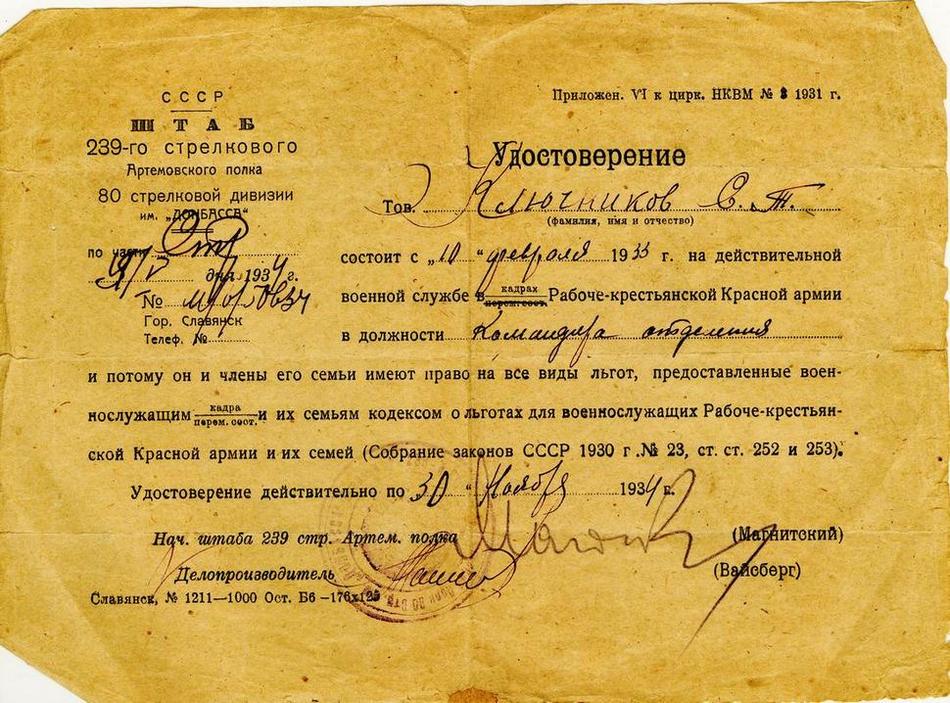 СССР
ШТАБ
239-го стрелкового
Артемовского полка
80 стрелковой дивизии
им. „ДОНБАССА“
по части Стр
9/V дня 1934 г.
№
Гор. Славянск
Телеф. №
Приложен. VI к цирк. НКВМ № 8 1931 г.
Удостоверение
Тов. Ключников С. Т.
(фамилия, имя и отчество)
состоит с „10“ февраля 1933 г. на действительной
кадрах
военной службе в перем. сост. Рабоче-крестьянской Красной армии
в должности Командира отделения
и потому он и члены его семьи имеют право на все виды льгот, предоставленные воен-
кадра
нослужащим перем. сост. и их семьям кодексом о льготах для военнослужащих Рабоче-крестьян-
ской Красной армии и их семей (Собрание законов СССР 1930 г. № 23, ст. ст. 252 и 253).
Удостоверение действительно по 30 “ Ноября 1934 г.
Нач. штаба 239 стр. Артем. полка (Магнитский)
Делопроизводитель (Вайсберг)
Славянск, № 1211—1000 Ост. Б6 —176х125